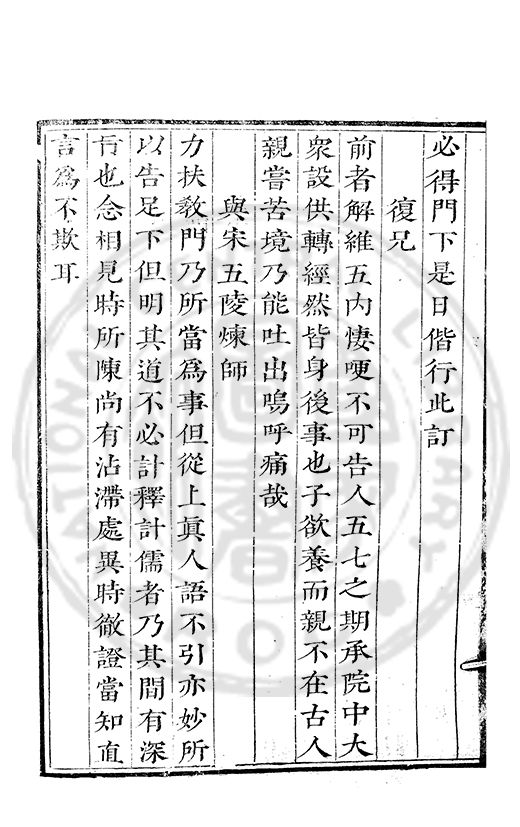 必得門下是日偕行此訂
復兄
前者解維五內悽哽不可告人五七之期承院中大
衆設供轉經然皆身後事也子欲養而親不在古人
親嘗苦境乃能吐出嗚呼痛哉
與宋五陵煉師
力扶教門乃所當爲事但從上眞人語不引亦妙所
以告足下但明其道不必計釋計儒者乃其間有深
旨也念相見時所陳尚有沾滯處異時徹證當知直
言爲不欺耳